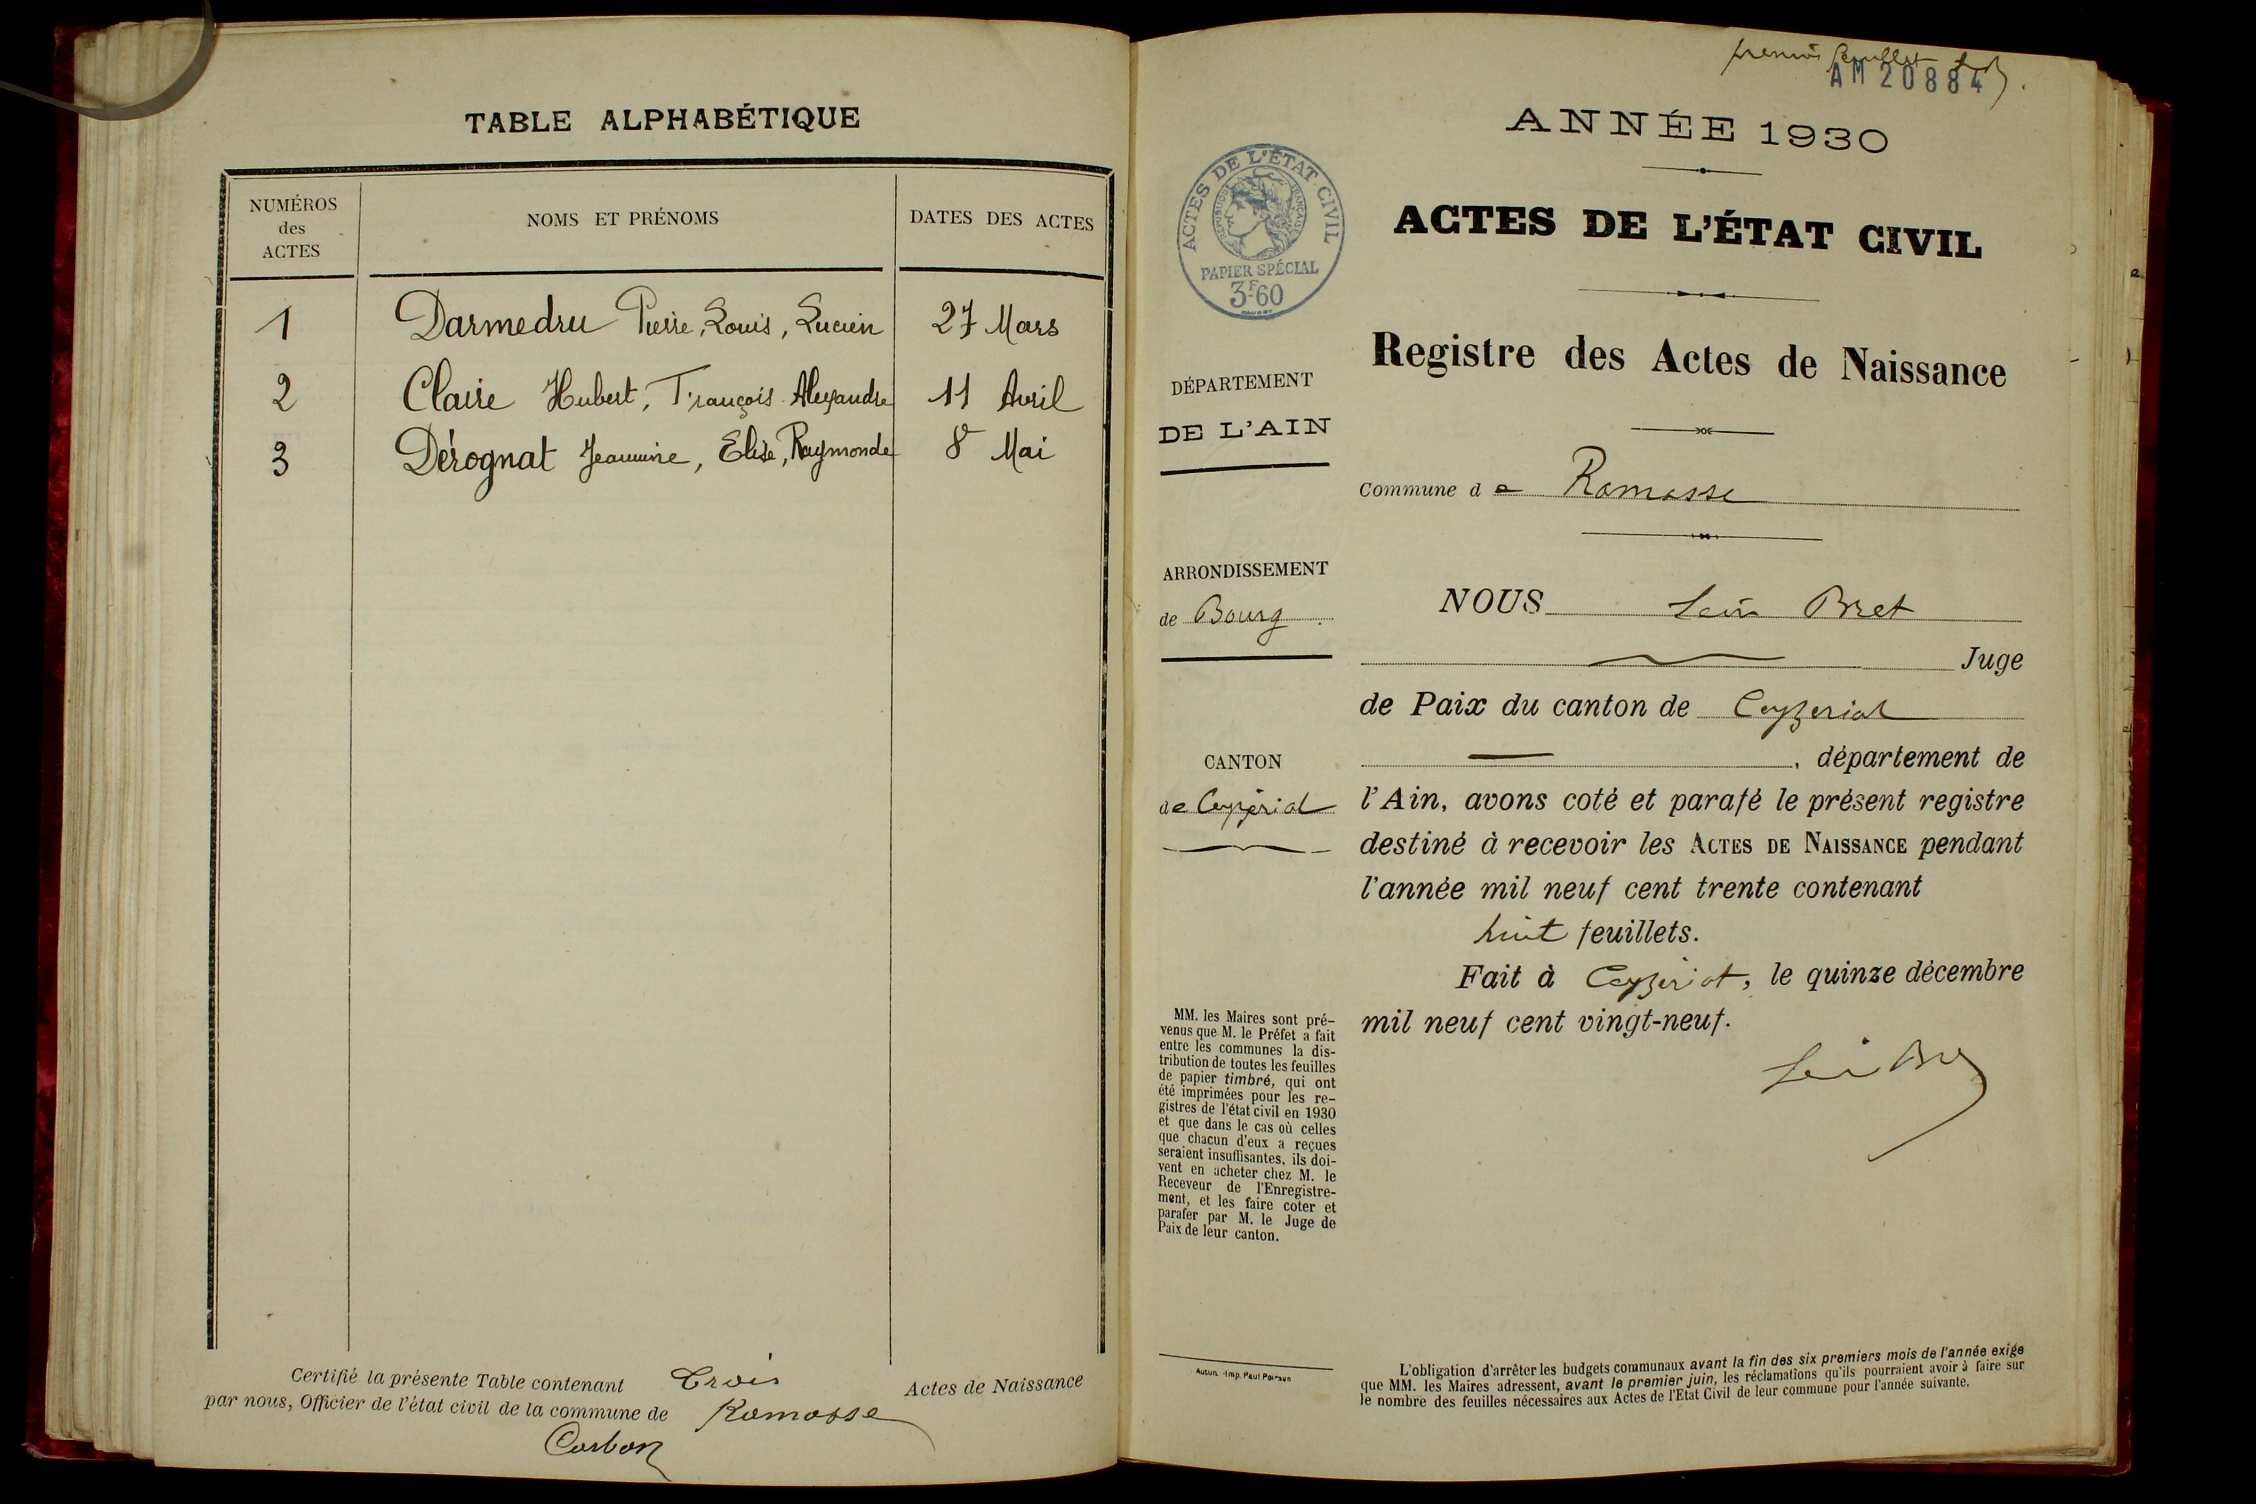 TABLE ALPHABÉTIQUE
NUMÉROS
des
ACTES
NOMS ET PRÉNOMS
DATES DES ACTES
1 Darmedru Pierre, Louis, Lucien 27 Mars
2 Claire Hubert, François Alexandre 11 Avril
3 Dérognat Jeannine, Elise, Raymonde 8 Mai
Certifié la présente Table contenant trois Actes de Naissance
par nous, Officier de l'état civil de la commune de Ramasse
Carbon
premier feuillet
AM 20884
ANNÉE 1930
ACTES DE L'ÉTAT CIVIL
RÉPUBLIQUE FRANÇAISE
PAPIER SPÉCIAL
3F60
ACTES DE L'ÉTAT CIVIL
Registre des Actes de Naissance
DÉPARTEMENT
DE L'AIN
Commune de Ramasse
ARRONDISSEMENT
de Bourg
NOUS Bret
Juge
de Paix du canton de Ceyzeriat
CANTON
de Ceyzériat
, département de
l'Ain, avons coté et parafé le présent registre
destiné à recevoir les ACTES DE NAISSANCE pendant
l'année mil neuf cent trente contenant
huit feuillets.
Fait à Ceyzériat, le quinze décembre
mil neuf cent vingt-neuf.
MM. les Maires sont pré-
venus que M. le Préfet a fait
entre les communes la dis-
tribution de toutes les feuilles
de papier timbré, qui ont
été imprimées pour les re-
gistres de l'état civil en 1930
et que dans le cas où celles
que chacun d'eux a reçues
seraient insuffisantes, ils doi-
vent en acheter chez M. le
Receveur de l'Enregistre-
ment, et les faire coter et
parafer par M. le Juge de
Paix de leur canton.
Autun. - Imp. Paul Poirson
L'obligation d'arrêter les budgets communaux avant la fin des six premiers mois de l'année exige
que MM. les Maires adressent, avant le premier juin, les réclamations qu'ils pourraient avoir à faire sur
le nombre des feuilles nécessaires aux Actes de l'Etat Civil de leur commune pour l'année suivante.